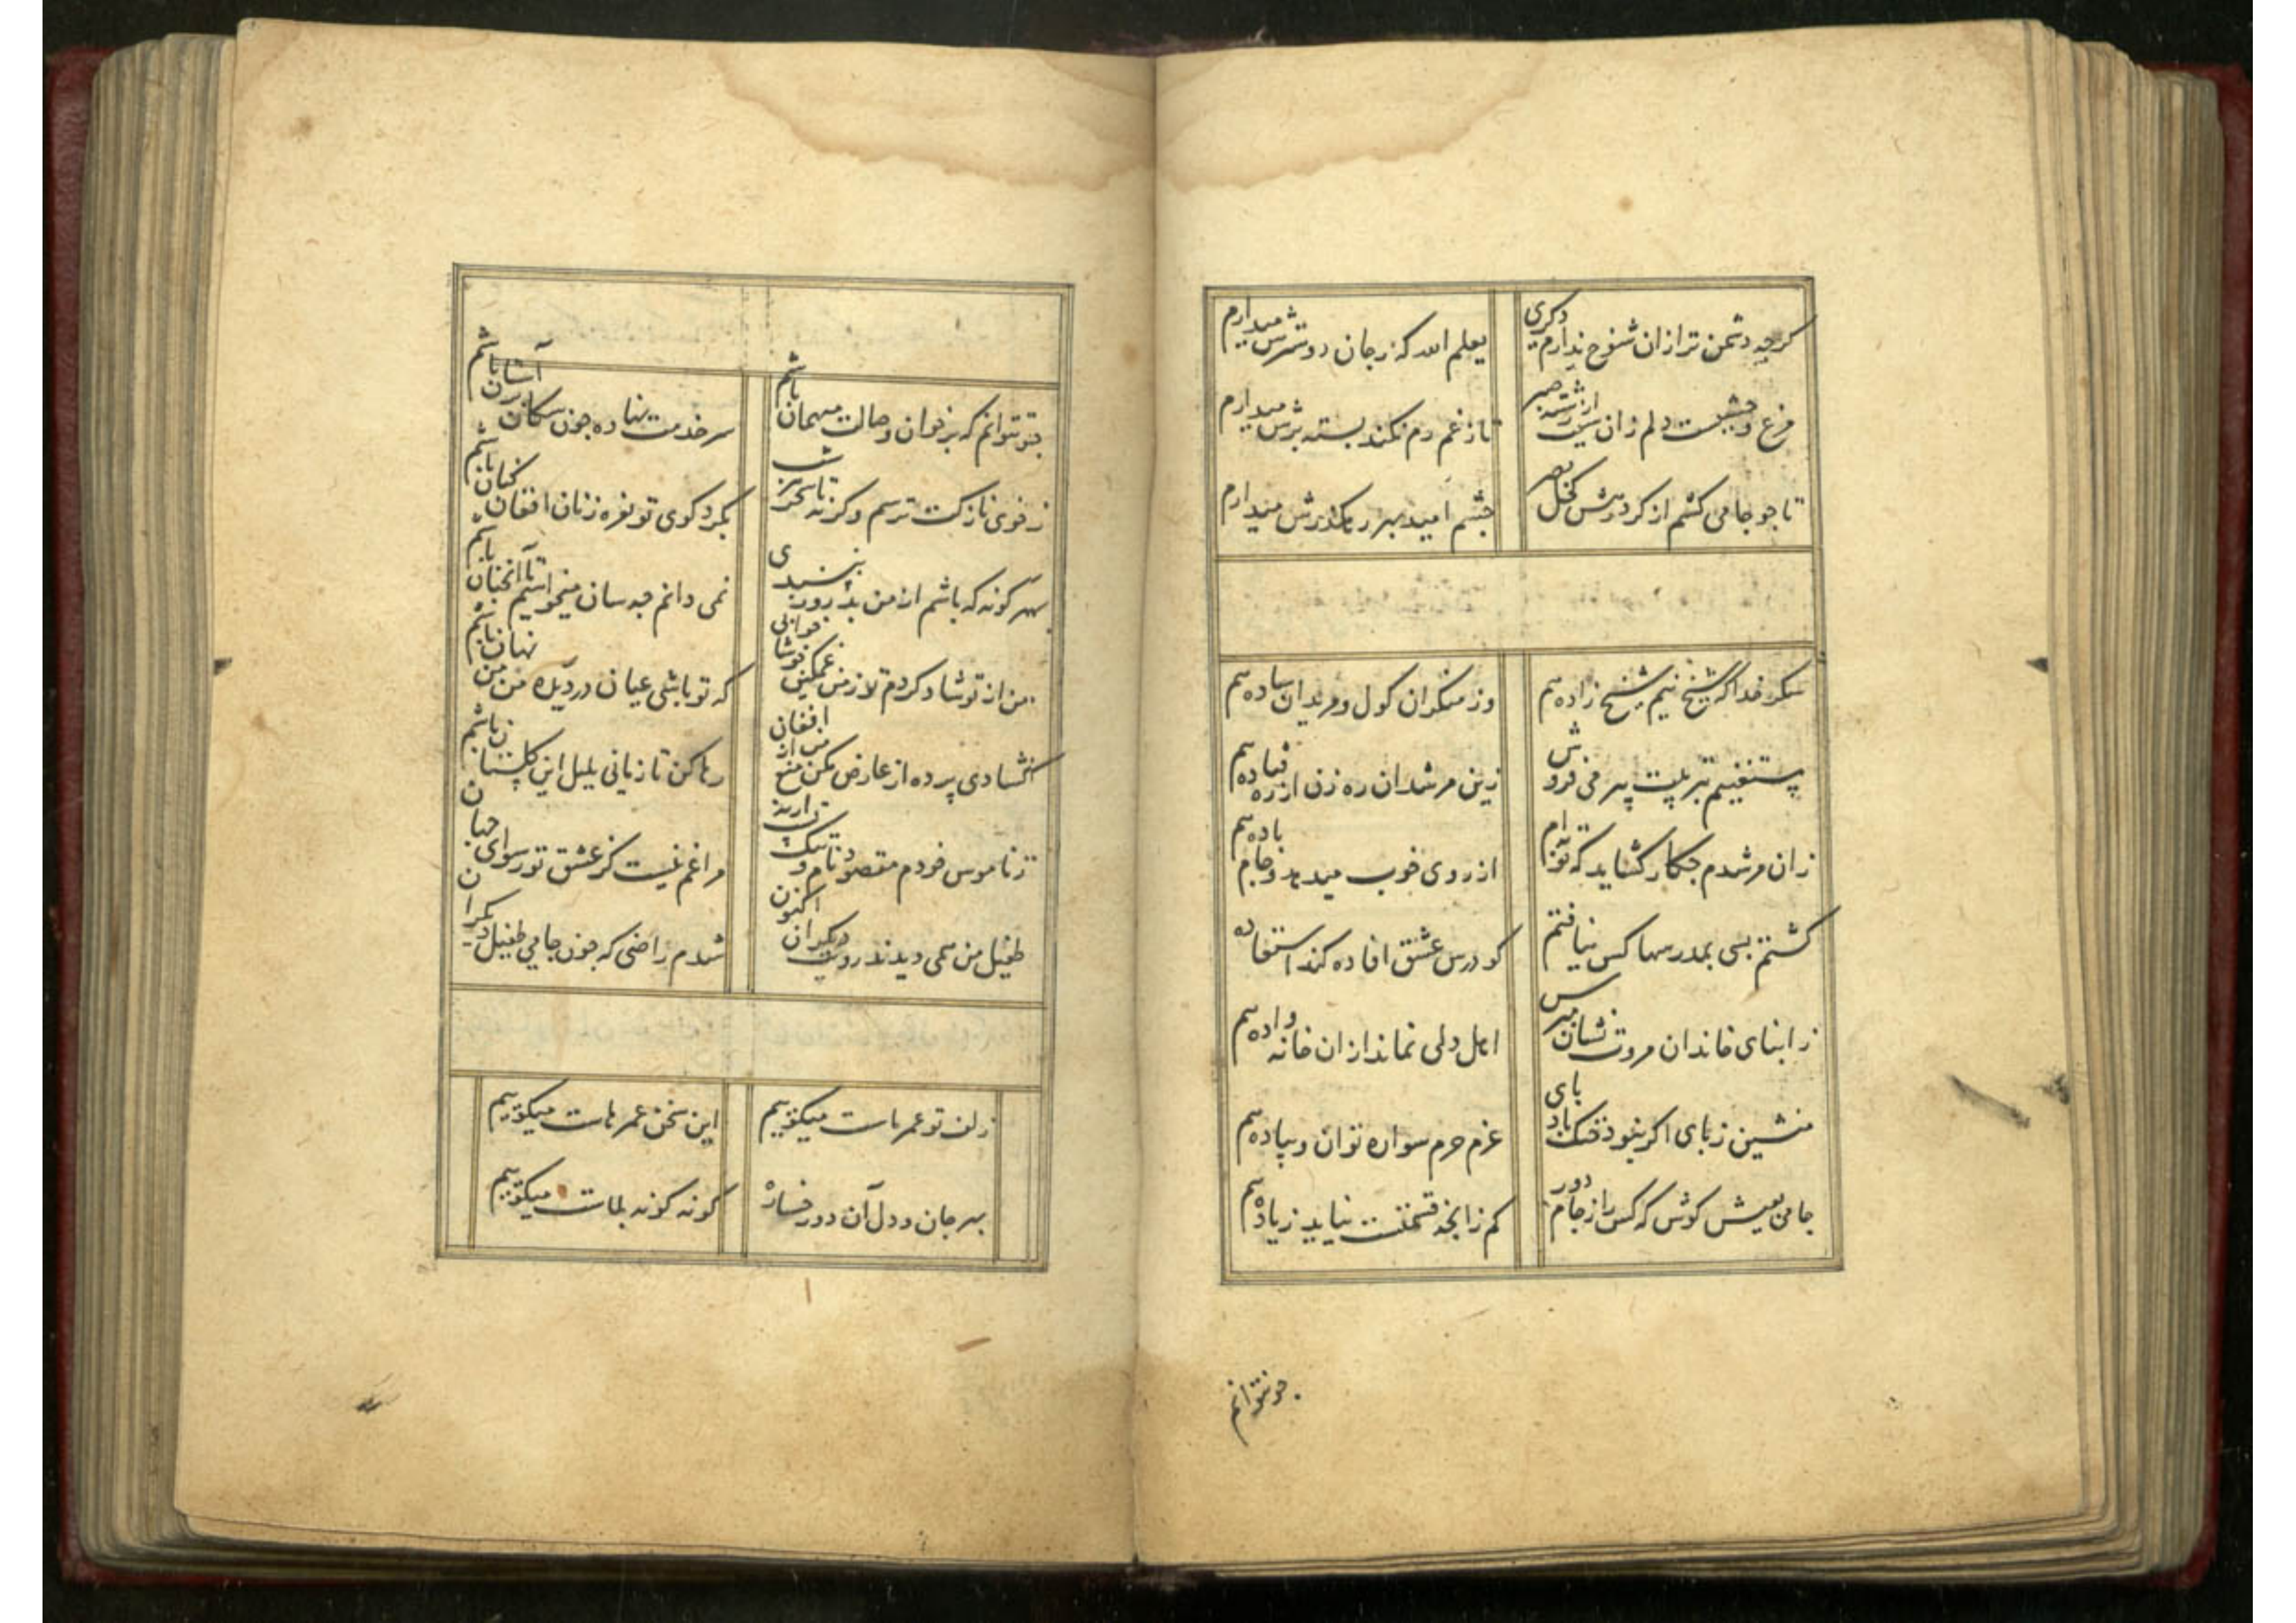 کرچه دشمن تر ازان شوخ ندارم دکری یعلم الله که ز جان دوسترش میدارم
مرغ وحشیست دلم زان سبب از رشته صبر تا ز غم رم نکند بسته پرش میدارم
تا چو جامی کشم از کرد رهش کحل بصر چشم امید بهر رهکذرش میدارم
شکر خدا که شیخ نیم شیخ زاده هم وز منکران کول و مریدان ساده هم
مستغنیم تربیت پیر می فروش زین مرشدان ره زن از ره فتاده هم
زان مرشدم چکار کشاید که توبه ام از روی خوب میدهد و جام باده هم
کشتم بسی بمدرسها کس نیافتم کو درس عشق افاده کند استفاده
ز ابنای خاندان مروت نشان مپرس اهل دلی نماند ازان خانواده هم
منشین ز پای اکر نبود خنک بادپای عزم حرم سواره توان و پیاده هم
جامی بعیش کوش که کس را ز جام دور کم زانچه قسمتست نیاید زیاده هم
چو نتوانم
چو نتوانم که بر خوان وصالت میهمان باشم سر خدمت نهاده چون سکان بر آستان باشم
ز خوی نازکت ترسم و کرنه تا سحر هر شب بکرد کوی تو نعره زنان افغان کنان باشم
بهر کونه که باشم از من بد روز نپسندی نمی دانم چه سان میخواستیم تا آنچنان باشم
من از تو شاد کردم تو ز من غمکین خوشا که تو باشی عیان در دیده من من نهان باشم
کشادی پرده از عارض مکن منع من از افغان رها کن تا زمانی بلبل این کلستان باشم
ز ناموس خودم مقصود نام نیک تست ارنه مرا غم نیست کز عشق تو رسوای جهان
طفیل من همی دیدند رویت دیکران اکنون شدم راضی که چون جامی طفیل دیکران
زلف تو عمر ماست میکوییم این سخن عمرهاست میکوییم
بهر جان و دل آن دو رخساره کونه کونه بلاست میکوییم